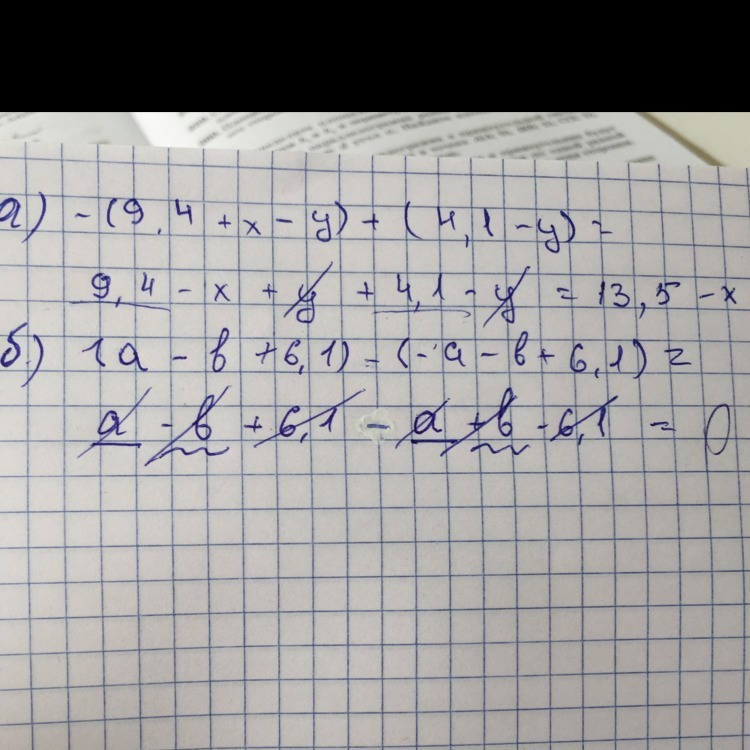 а) -(9,4 + x - y) + (4,1 - y) =
9,4 - x + y + 4,1 - y = 13,5 - x
б.) (a - b + 6,1) - (- a - b + 6,1) =
a - b + 6,1 - a + b - 6,1 = 0